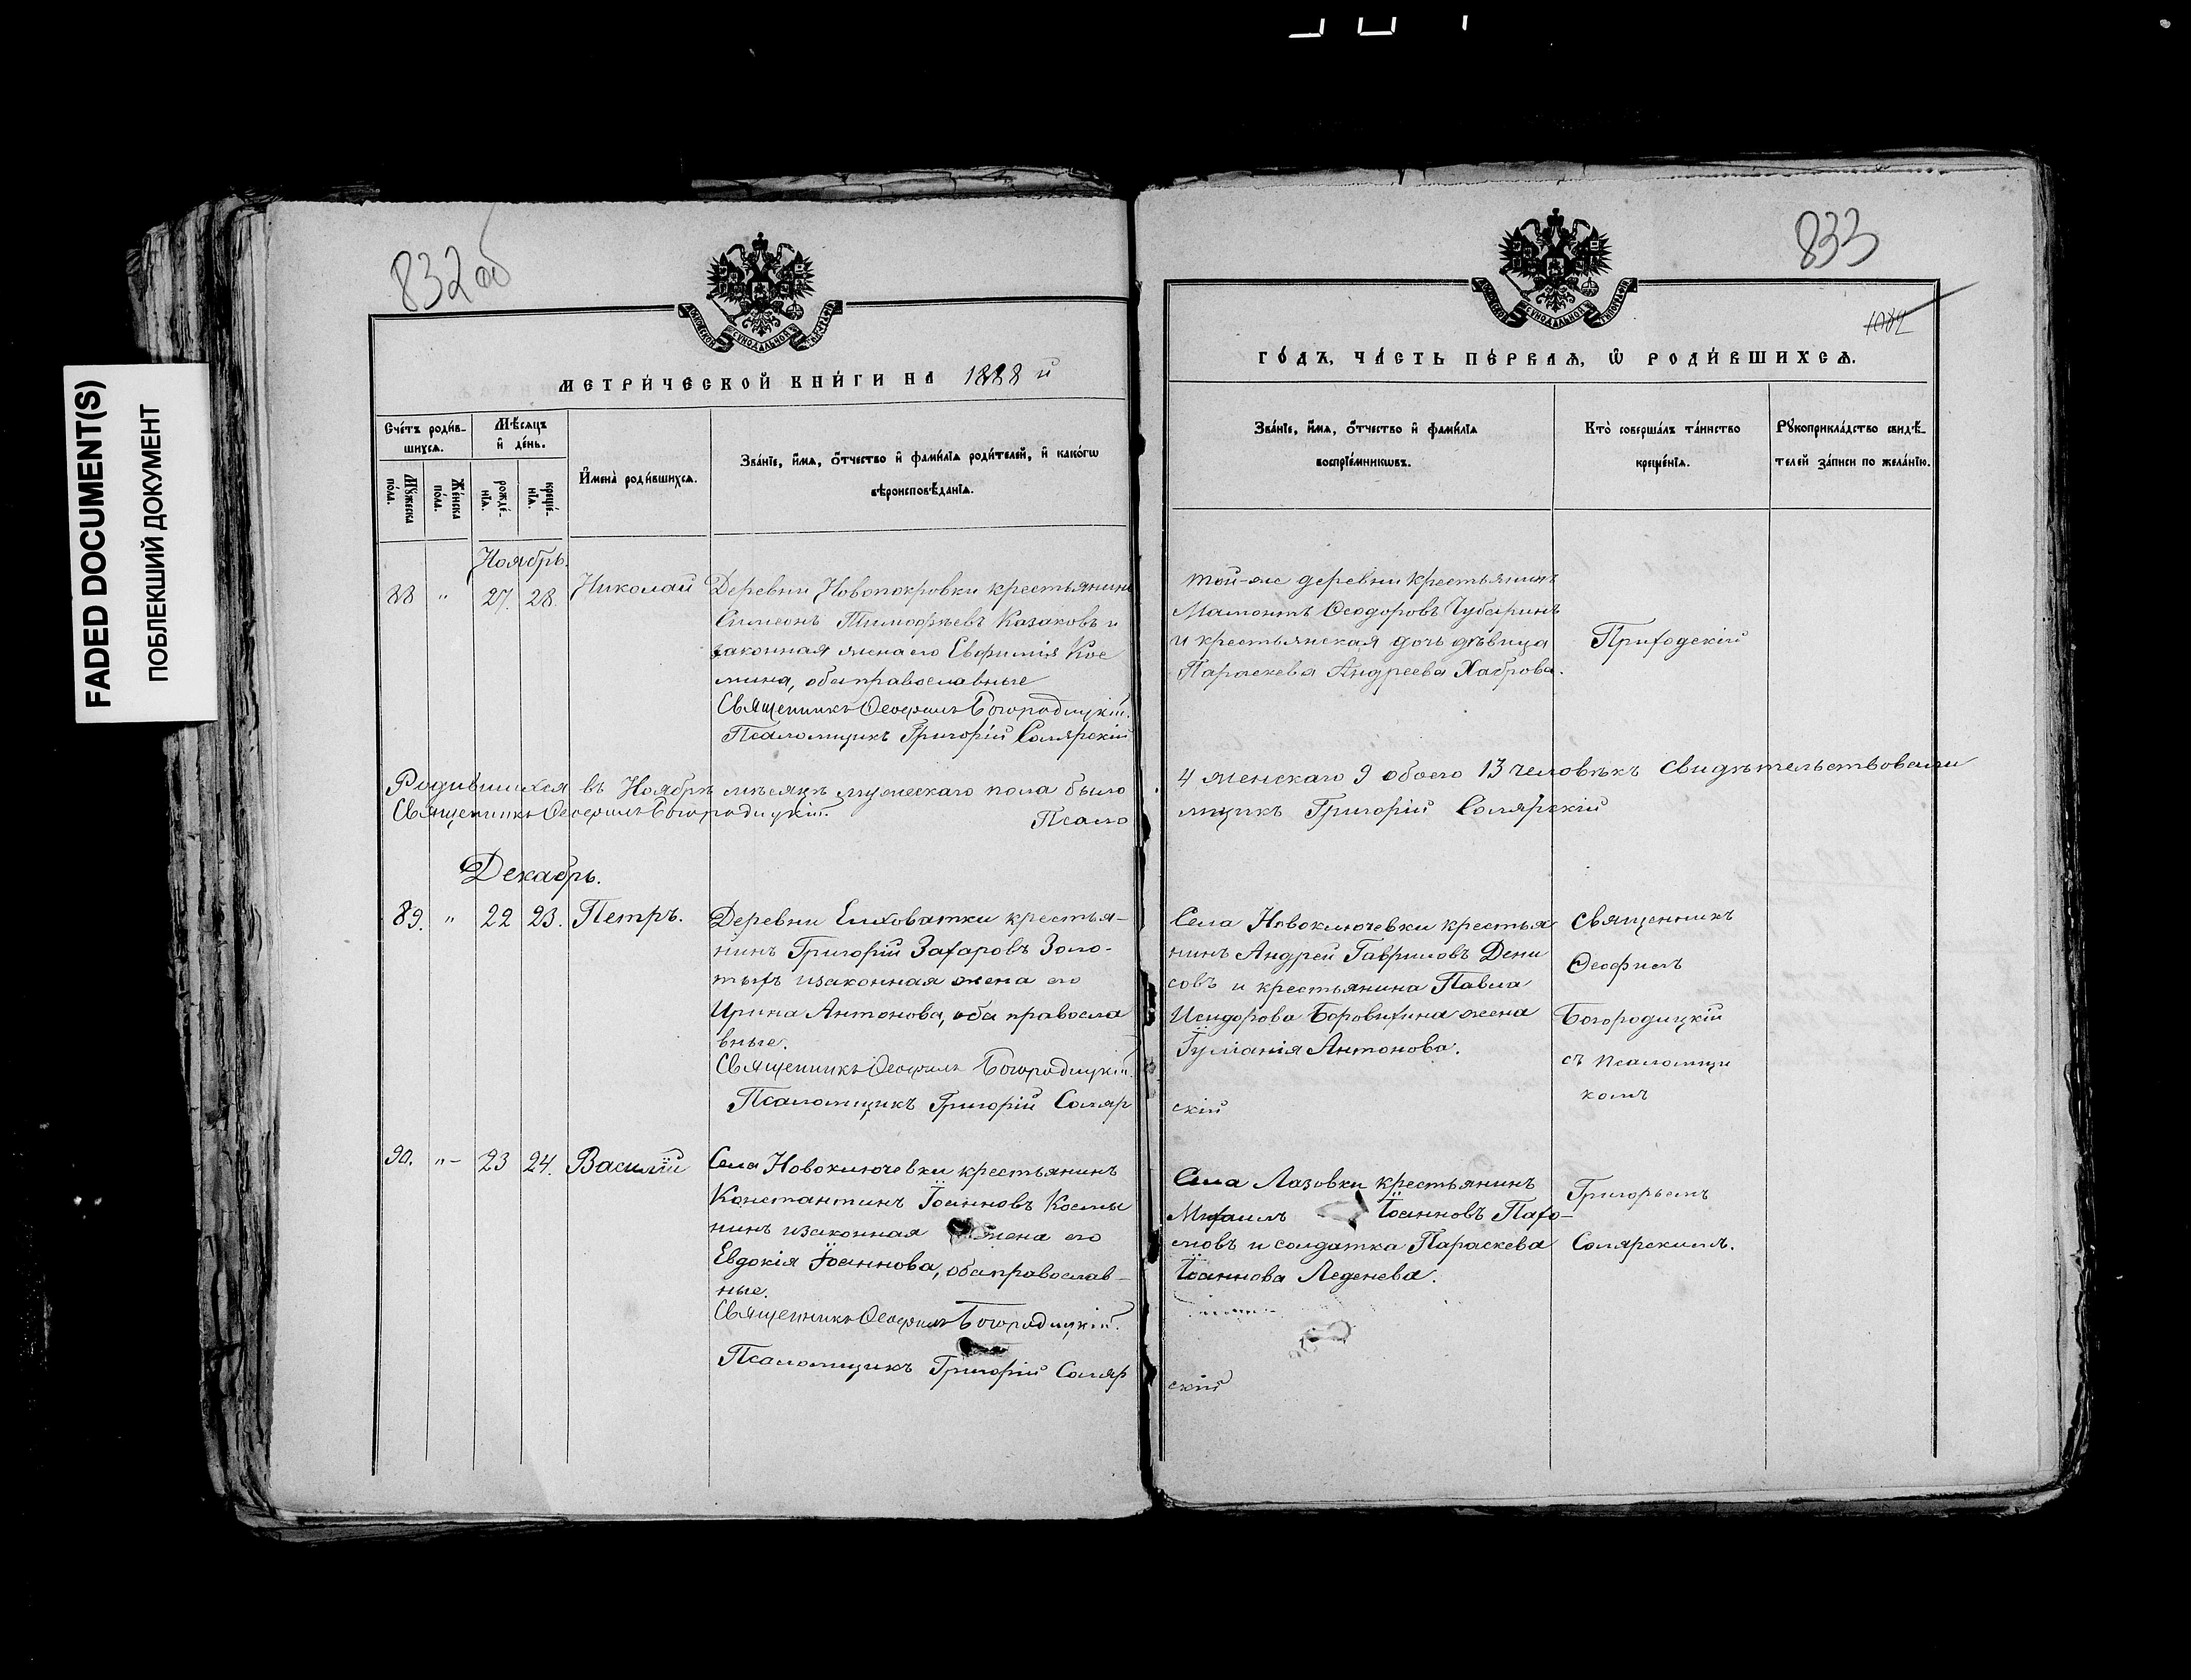 FADED DOCUMENT(S)
ПОБЛЕКШИЙ ДОКУМЕНТ
832 об
МОСКОВСКОЙ СѴНОДАЛЬНОЙ ТИПОГРАФІИ
МЕТРИ́ЧЕСКОЙ КНИ́ГИ НА 1888 й
Сче́тъ роди́в-
шихсѧ.
Мꙋ́жеска
по́ла.
Же́нска
по́ла.
Мѣ́сяцъ
и҆ де́нь.
рожде́-
нїѧ.
креще́-
нїѧ.
И҆мена̀ роди́вшихсѧ.
Зва́нїе, и҆́мѧ, ѻ҆́тчество и҆ фами́лїѧ роди́телей, и҆ како́гѡ
вѣроисповѣ́данїѧ.
Ноябрь.
88 " 27. 28. Николай Деревни Новопокровки крестьянинъ
Симеонъ Тимофѣевъ Казаковъ и
законная жена его Евфимія Кос
мина, оба православные
Священникъ Ѳеофилъ Богородицкій.
Псаломщикъ Григорій Солярскій
Родившихся въ Ноябрѣ мѣсяцѣ мужескаго пола было
Священникъ Ѳеофилъ Богородицкій. Псало
Декабрь.
89. " 22 23. Петръ. Деревни Елховатки крестья-
нинъ Григорій Захаровъ Золо-
тыхъ и законная жена его
Ирина Антонова, оба правосла
вные.
Священникъ Ѳеофилъ Богородицкій.
Псаломщикъ Григорій Соляр
90. "- 23 24. Василій Села Новоключевки крестьянинъ
Константинъ Іоанновъ Космы
нинъ и законная жена его
Евдокія Іоаннова, оба православ-
ные.
Священникъ Ѳеофилъ Богородицкій.
Псаломщикъ Григорій Соляр
833
1084
МОСКОВСКОЙ СѴНОДАЛЬНОЙ ТИПОГРАФІИ
ГО́ДЪ, ЧА́СТЬ ПЕ́РВАѦ, Ѡ҆ РОДИ́ВШИХСѦ.
Зва́нїе, и҆́мѧ, ѻ҆́тчество и҆ фами́лїѧ
воспрїе́мникѡвъ.
Кто̀ соверша́лъ та́инство
креще́нїѧ.
Рꙋкоприкла́дство свидѣ́-
телей за́писи по жела́нїю.
той-же деревни крестьянинъ
Мамонтъ Ѳеодоровъ Чубаринъ
и крестьянская дочь дѣвица
Параскева Андреева Хаброва.
Приходскій
4 женскаго 9 обоего 13 человѣкъ свидѣтельствовали
мщикъ Григорій Солярскій
Села Новоключевки крестья
нинъ Андрей Гавриловъ Дени
совъ и крестьянина Павла
Исидорова Боровихина жена
Іуліанія Антонова.
скій
Священникъ
Ѳеофилъ
Богородицкій
съ псаломщи
комъ
Села Лазовки крестьянинъ
Михаилъ Іоанновъ Пахо-
мовъ и солдатка Параскева
Іоаннова Леденева.
скій
Григорьемъ
Солярскимъ.